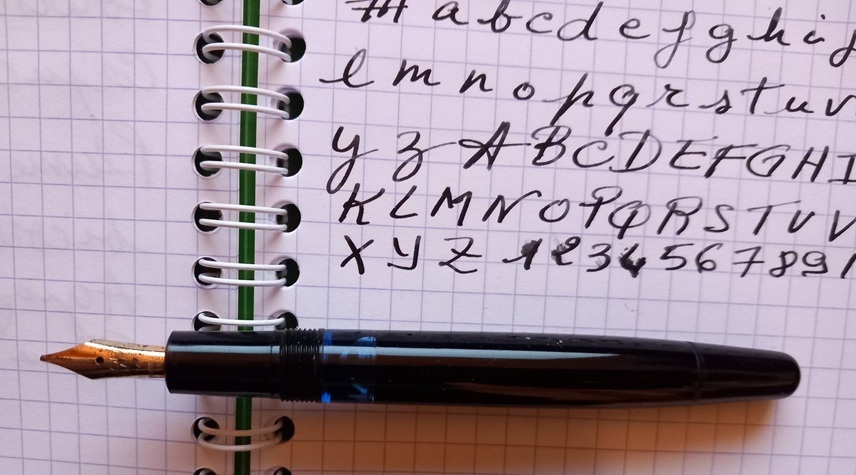 a b c d e f g h i j
l m n o p q r s t u v
y z A B C D E F G H I
K L M N O P Q R S T U V
X Y Z 1 2 3 4 5 6 7 8 9 1